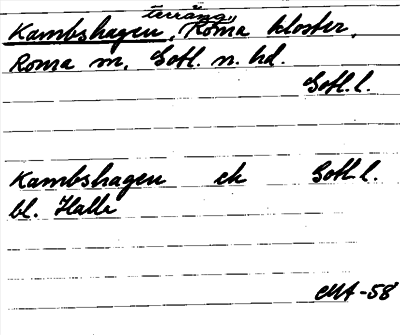 Kambshagen, terräng, Roma kloster,
Roma sn. Gotl. n. hd.
Gotl. l.
Kambshagen ek Gotl. l.
bl. Halle
MA-58